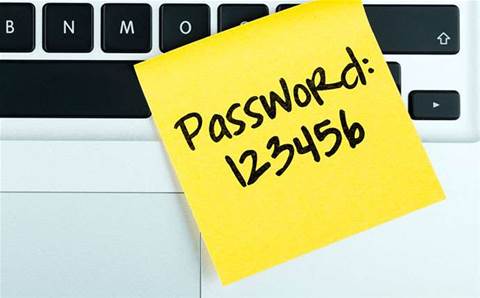 B N M O
PassWoRd:
123456